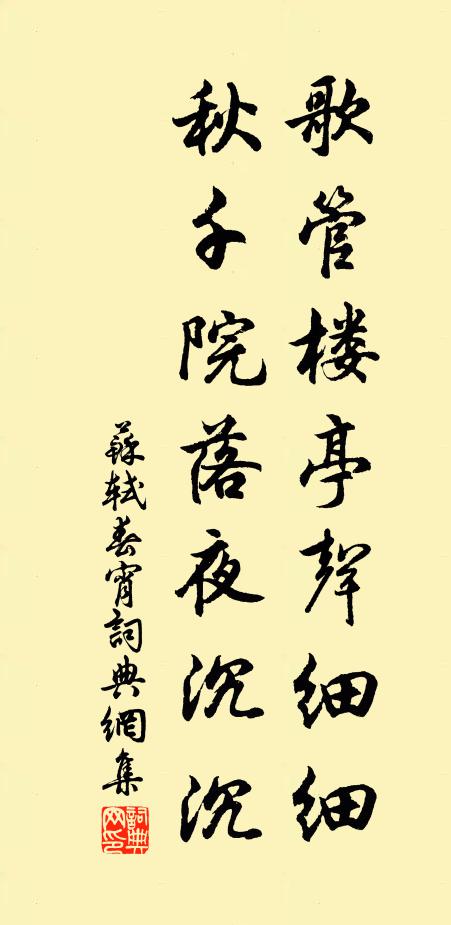 歌管楼亭聲细细
秋千院落夜沉沉
蘇軾春宵詞典網集
詞典網印